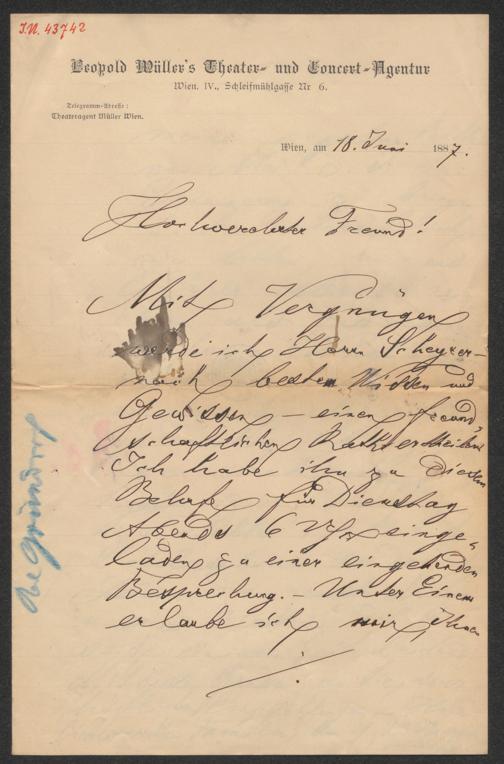 I.N. 43742
Leopold Müller's Theater- und Concert-Agentur
Wien, IV., Schleifmühlgasse Nr 6.
Telegramm-Adresse:
Theateragent Müller Wien.
Wien, am 18. Juni 1887.
Hochverehrter Freund!
Mit Vergnügen
werde ich Herrn Scheyrer
nach bestem Wissen und
Gewissen – einen freund-
schaftlichen Rath ertheilen
Ich habe ihn zu diesem
Behufe für Dienstag
Abends 6 Uhr einge-
laden zu einer eingehenden
Besprechung. – Unter Einem
erlaube ich mir, Ihnen